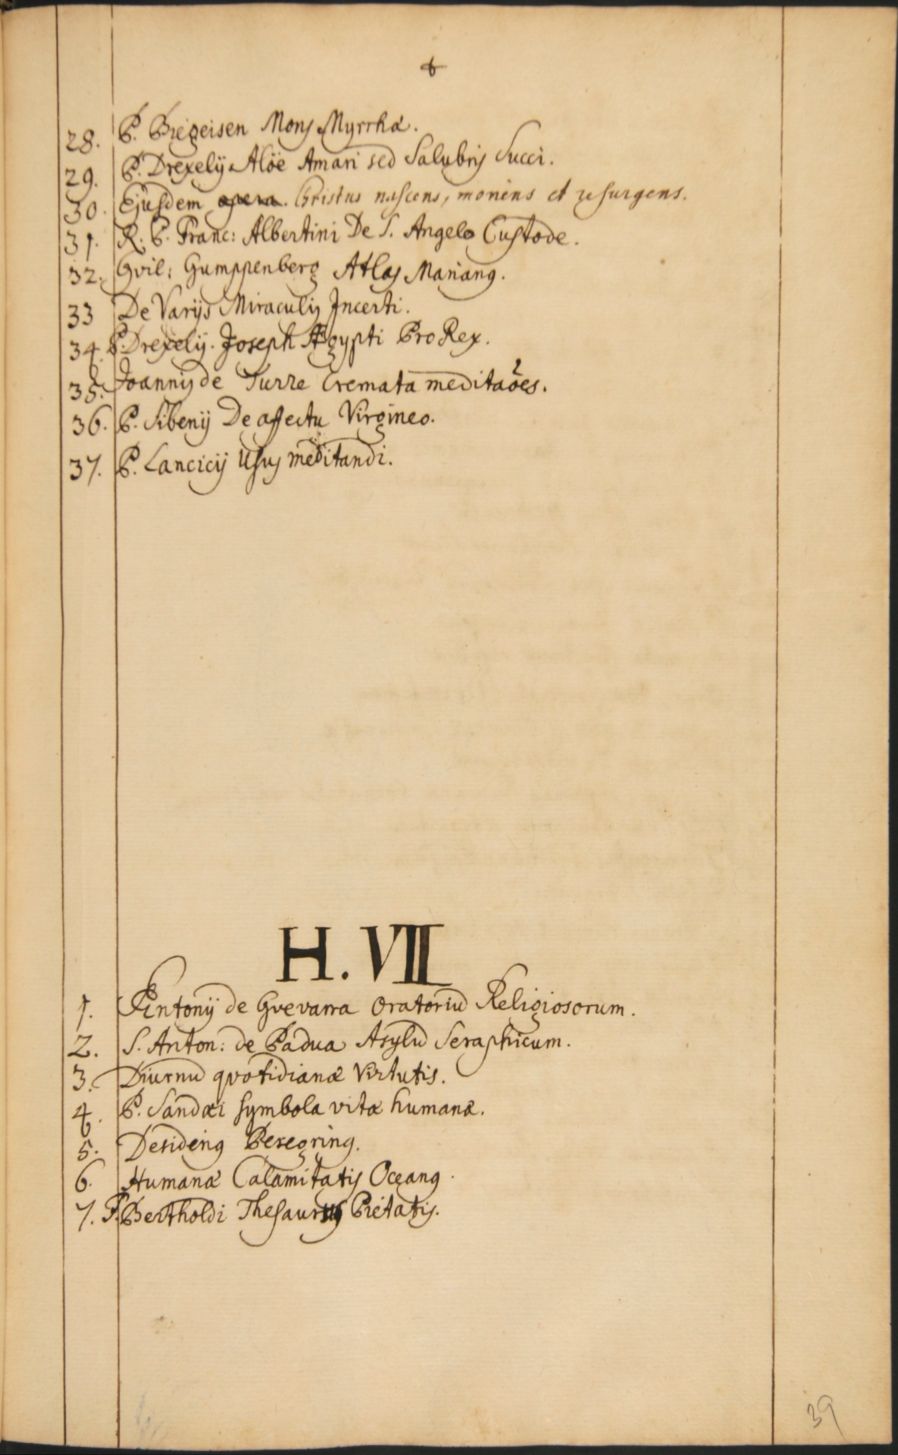 28. P. Briegeisen Mons Myrrhæ.
29. P. Drexelij Aloë Amari sed Salubris Succi.
30. Ejusdem opera. Christus nascens, moriens et resurgens.
31. R. P. Franc: Albertini De S. Angelo Custode.
32. Gvil: Gumppenberg Atlas Marianꝯ.
33 De Varijs Miraculis Incerti.
34. P. Drexelij. Joseph Ægypti ProRex.
35. Joannis de Turre Cremata meditaōes.
36. P. Sibenij De affectu Virgineo.
37. P. Lancicij Usus meditandi.
H. VII
1. Antonij de Gvevarra Oratoriū Religiosorum.
2. S. Anton: de Padua Asylū Seraphicum.
3. Diurnū qvotidianæ Virtutis.
4. P. Sandæi symbola vitæ humanæ.
5. Desideriꝯ Peregrinꝯ.
6. Humanæ Calamitatis Oceanꝯ.
7. P. Bertholdi Thesaurus Pietatis.
39